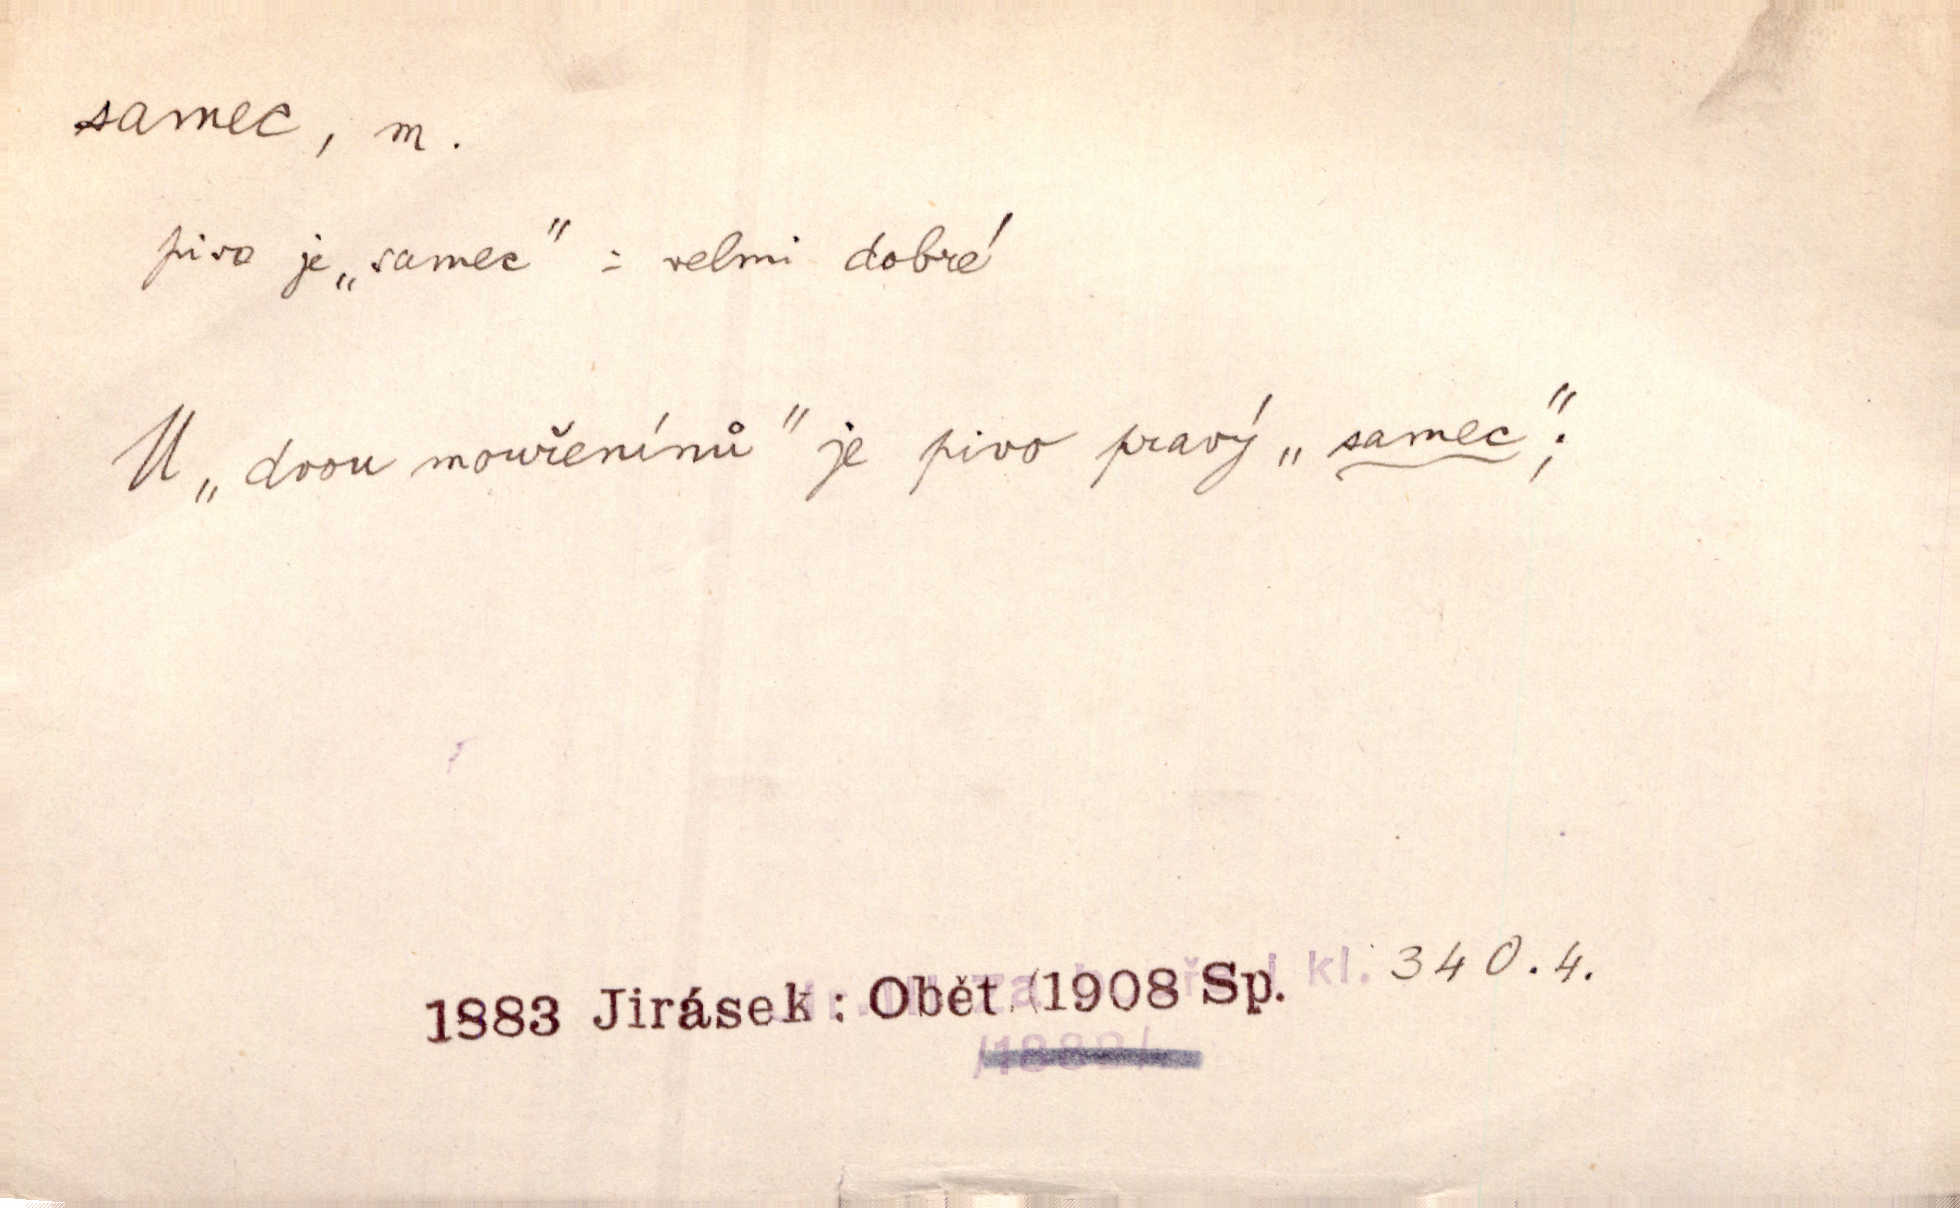 samec, m.
pivo je „samec" = velmi dobré
U „dvou mouřenínů" je pivo pravý „samec";
1883 Jirásek: Oběť (1908 Sp. kl. 340.4.
/1883/